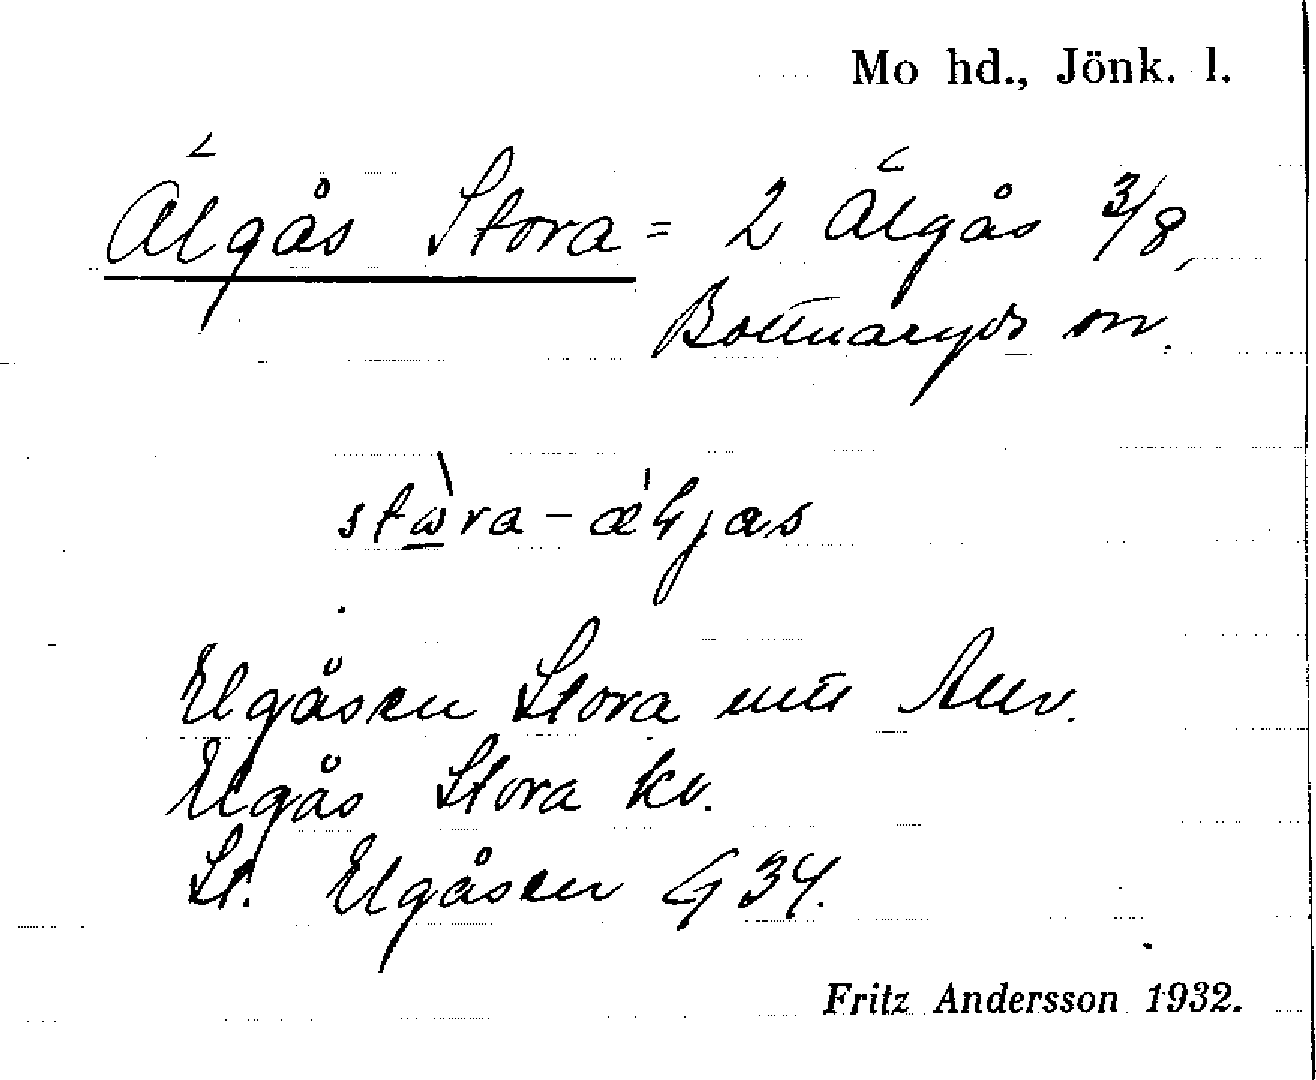 Mo hd., Jönk. l.
Älgås Stora = 2 Älgås 3/8,
Bottnaryds sn.
stὼra - æ´ljas
Elgåsen Stora utt Allv.
Elgås Stora kv.
St. Elgåsen G 34.
Fritz Andersson 1932.